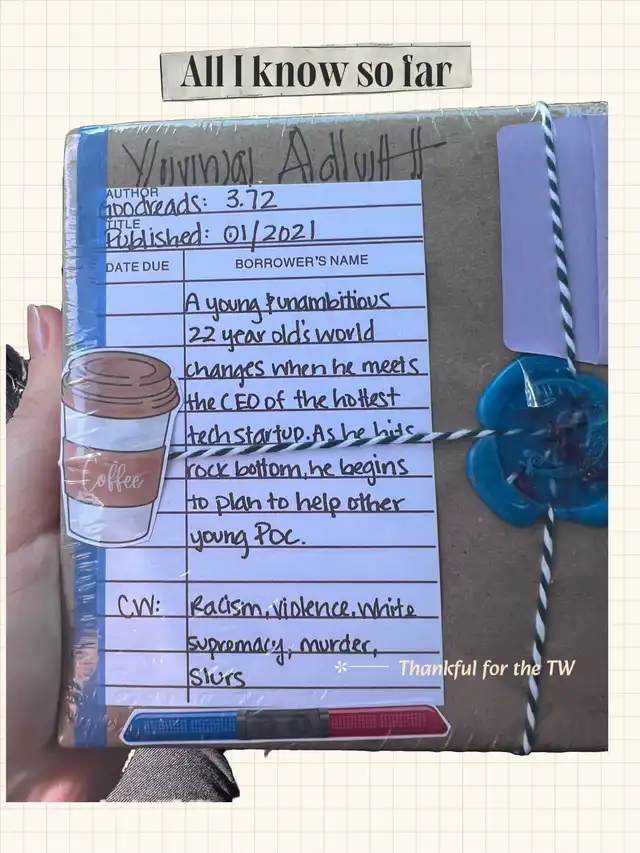 All I know so far
Young Adult
AUTHOR
Goodreads: 3.72
TITLE
Published: 01/2021
DATE DUE BORROWER'S NAME
A young & unambitious
22 year old's world
changes when he meets
the CEO of the hottest
tech startup. As he hits
rock bottom, he begins
to plan to help other
young POC.
Coffee
CW: Racism, violence, white
supremacy, murder,
slurs
Thankful for the TW